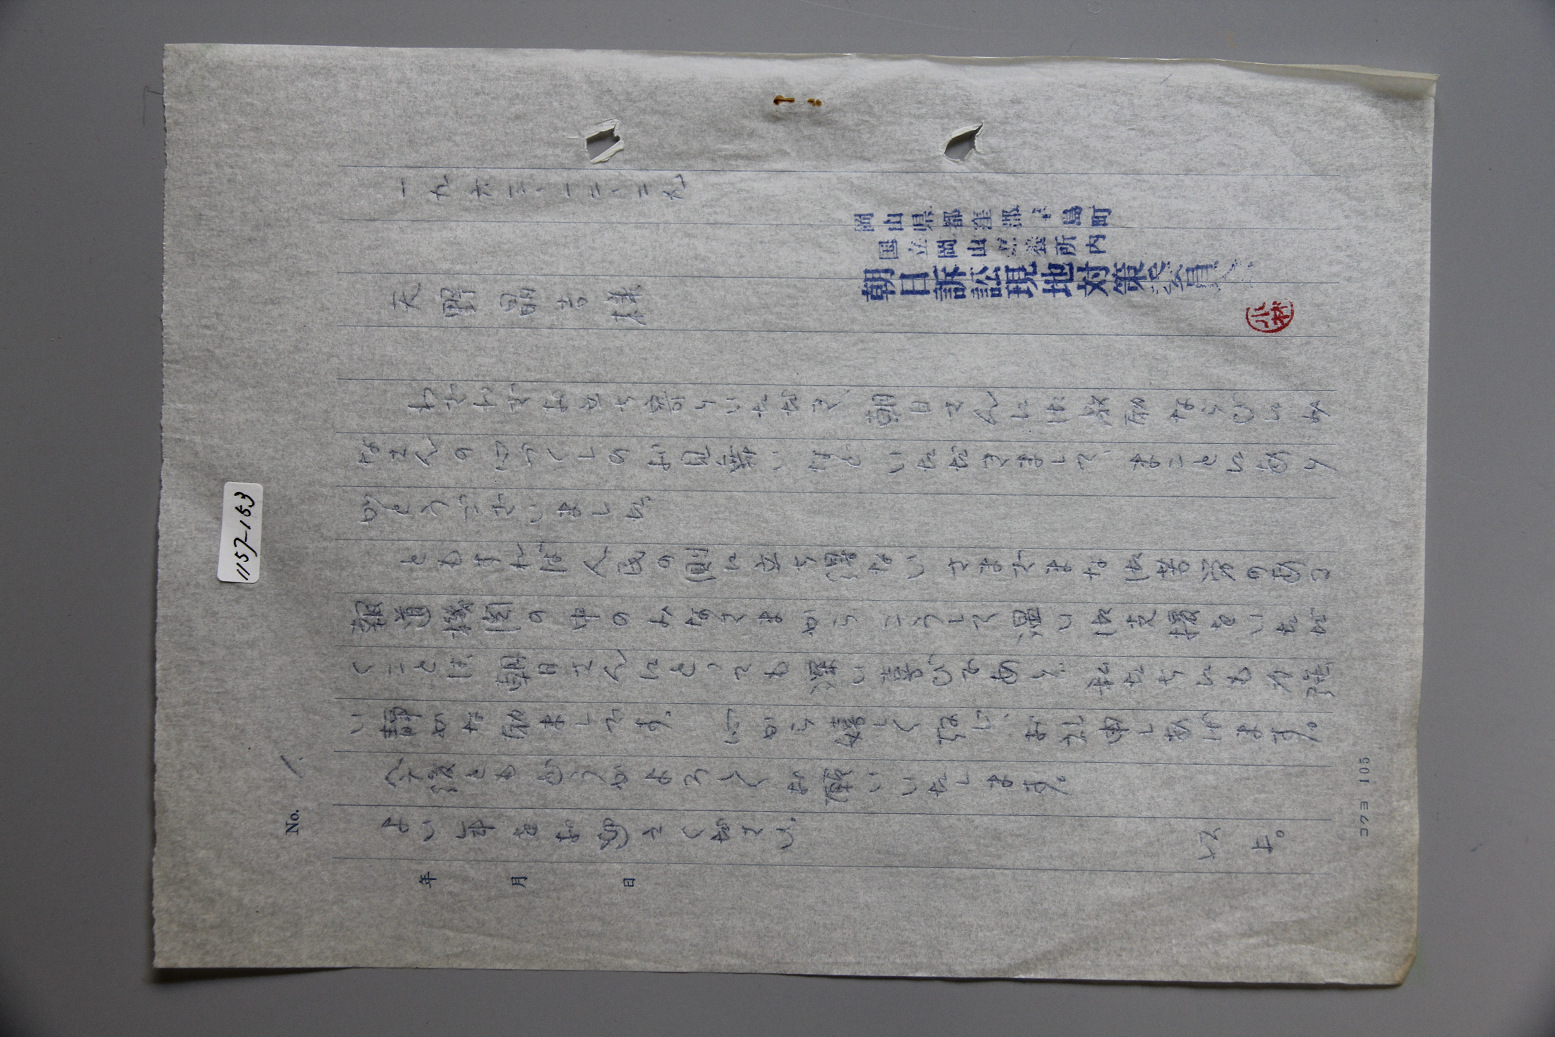 一九六三、一二、二九
岡山県都窪郡早島町
国立岡山療養所内
朝日訴訟現地対策委員会
小林
天野 様
わざわざお立ち寄りいただき、朝日さんには激励ならびにみ
なさんの心づくしのお見舞いなどいただきまして、まことにあり
がとうございました。
ともすれば人民の側に立ち得ないさまざまな御苦労のある
報道機関の中のみなさまから こうして温い御支援をいただ
くことは、朝日さんにとっても深い喜びであり、私たちにも力強
い静かな励ましです。 心から嬉しく 、お礼申しあげます。
今後ともどうかよろしくお願いいたします。
よい年をお迎え下さい。
以上。
No. 1
年 月 日
コクヨ 105
1157-153